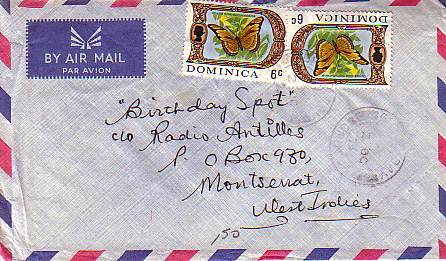 BY AIR MAIL
PAR AVION
DOMINICA 6c
DOMINICA 6c
"Birthday Spot"
c/o Radio Antilles
P. O Box 930,
Montserrat,
West Indies
150